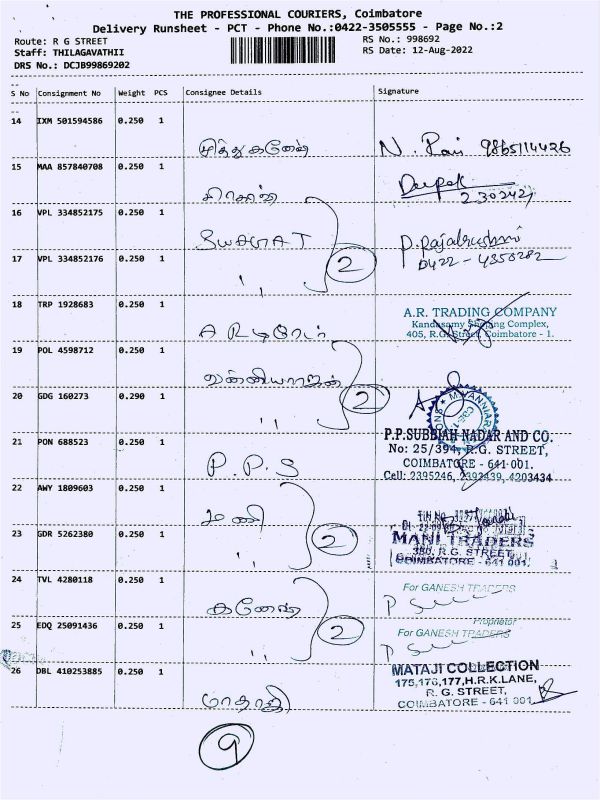 THE PROFESSIONAL COURIERS, Coimbatore
Delivery Runsheet - PCT - Phone No.:0422-3505555 - Page No.:2
Route: R G STREET
RS No.: 998692
Staff: THILAGAVATHII
RS Date: 12-Aug-2022
DRS No.: DCJB99869202
S No Consignment No Weight PCS Consignee Details Signature
14 IXM 501594586 0.250 1
முத்துகணேஷ் N. Ravi 9865114426
15 MAA 857840708 0.250 1
Deepak
2302421
16 VPL 334852175 0.250 1
SWAGAT
P. Rajalakshmi
17 VPL 334852176 0.250 1
0422 - 4350282
,, 2
18 TRP 1928683 0.250 1
A.R. TRADING COMPANY
Kandasamy Shoping Complex,
405, R.G. Street, Coimbatore - 1.
19 POL 4598712 0.250 1
வன்னியராஜன்
20 GDG 160273 0.290 1
,, 2
21 PON 688523 0.250 1
P.P.SUBBIAH NADAR AND CO.
No: 25/394, R.G. STREET,
COIMBATORE - 641 001.
P. P. S
Cell: 2395246, 2393439, 4203434
22 AWY 1809603 0.250 1
மணி
23 GDR 5262380 0.250 1
MANI TRADERS
380, R.G. STREET,
COIMBATORE - 641 001.
,, 2
24 TVL 4280118 0.250 1
For GANESH TRADERS
கணேஷ்
Proprietor
25 EDQ 25091436 0.250 1
For GANESH TRADERS
,, 2
26 DBL 410253885 0.250 1
MATAJI COLLECTION
175,176,177,H.R.K.LANE,
R. G. STREET,
COIMBATORE - 641 001.
மாதாஜி
9